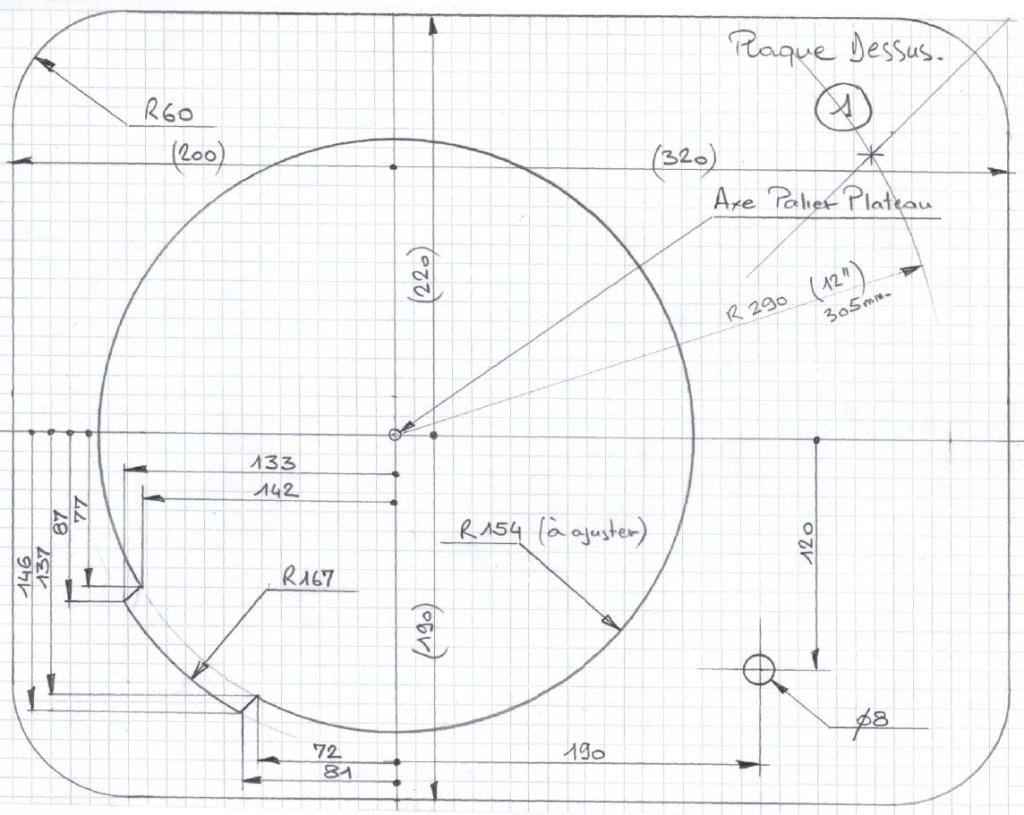 Plaque Dessus.
1
R60
(200)
(320)
Axe Palier Plateau
(220)
R 290 (12")
305mm
133
142
77
87
137
146
R 154 (à ajuster)
R167
(190)
120
Ø8
72
190
81